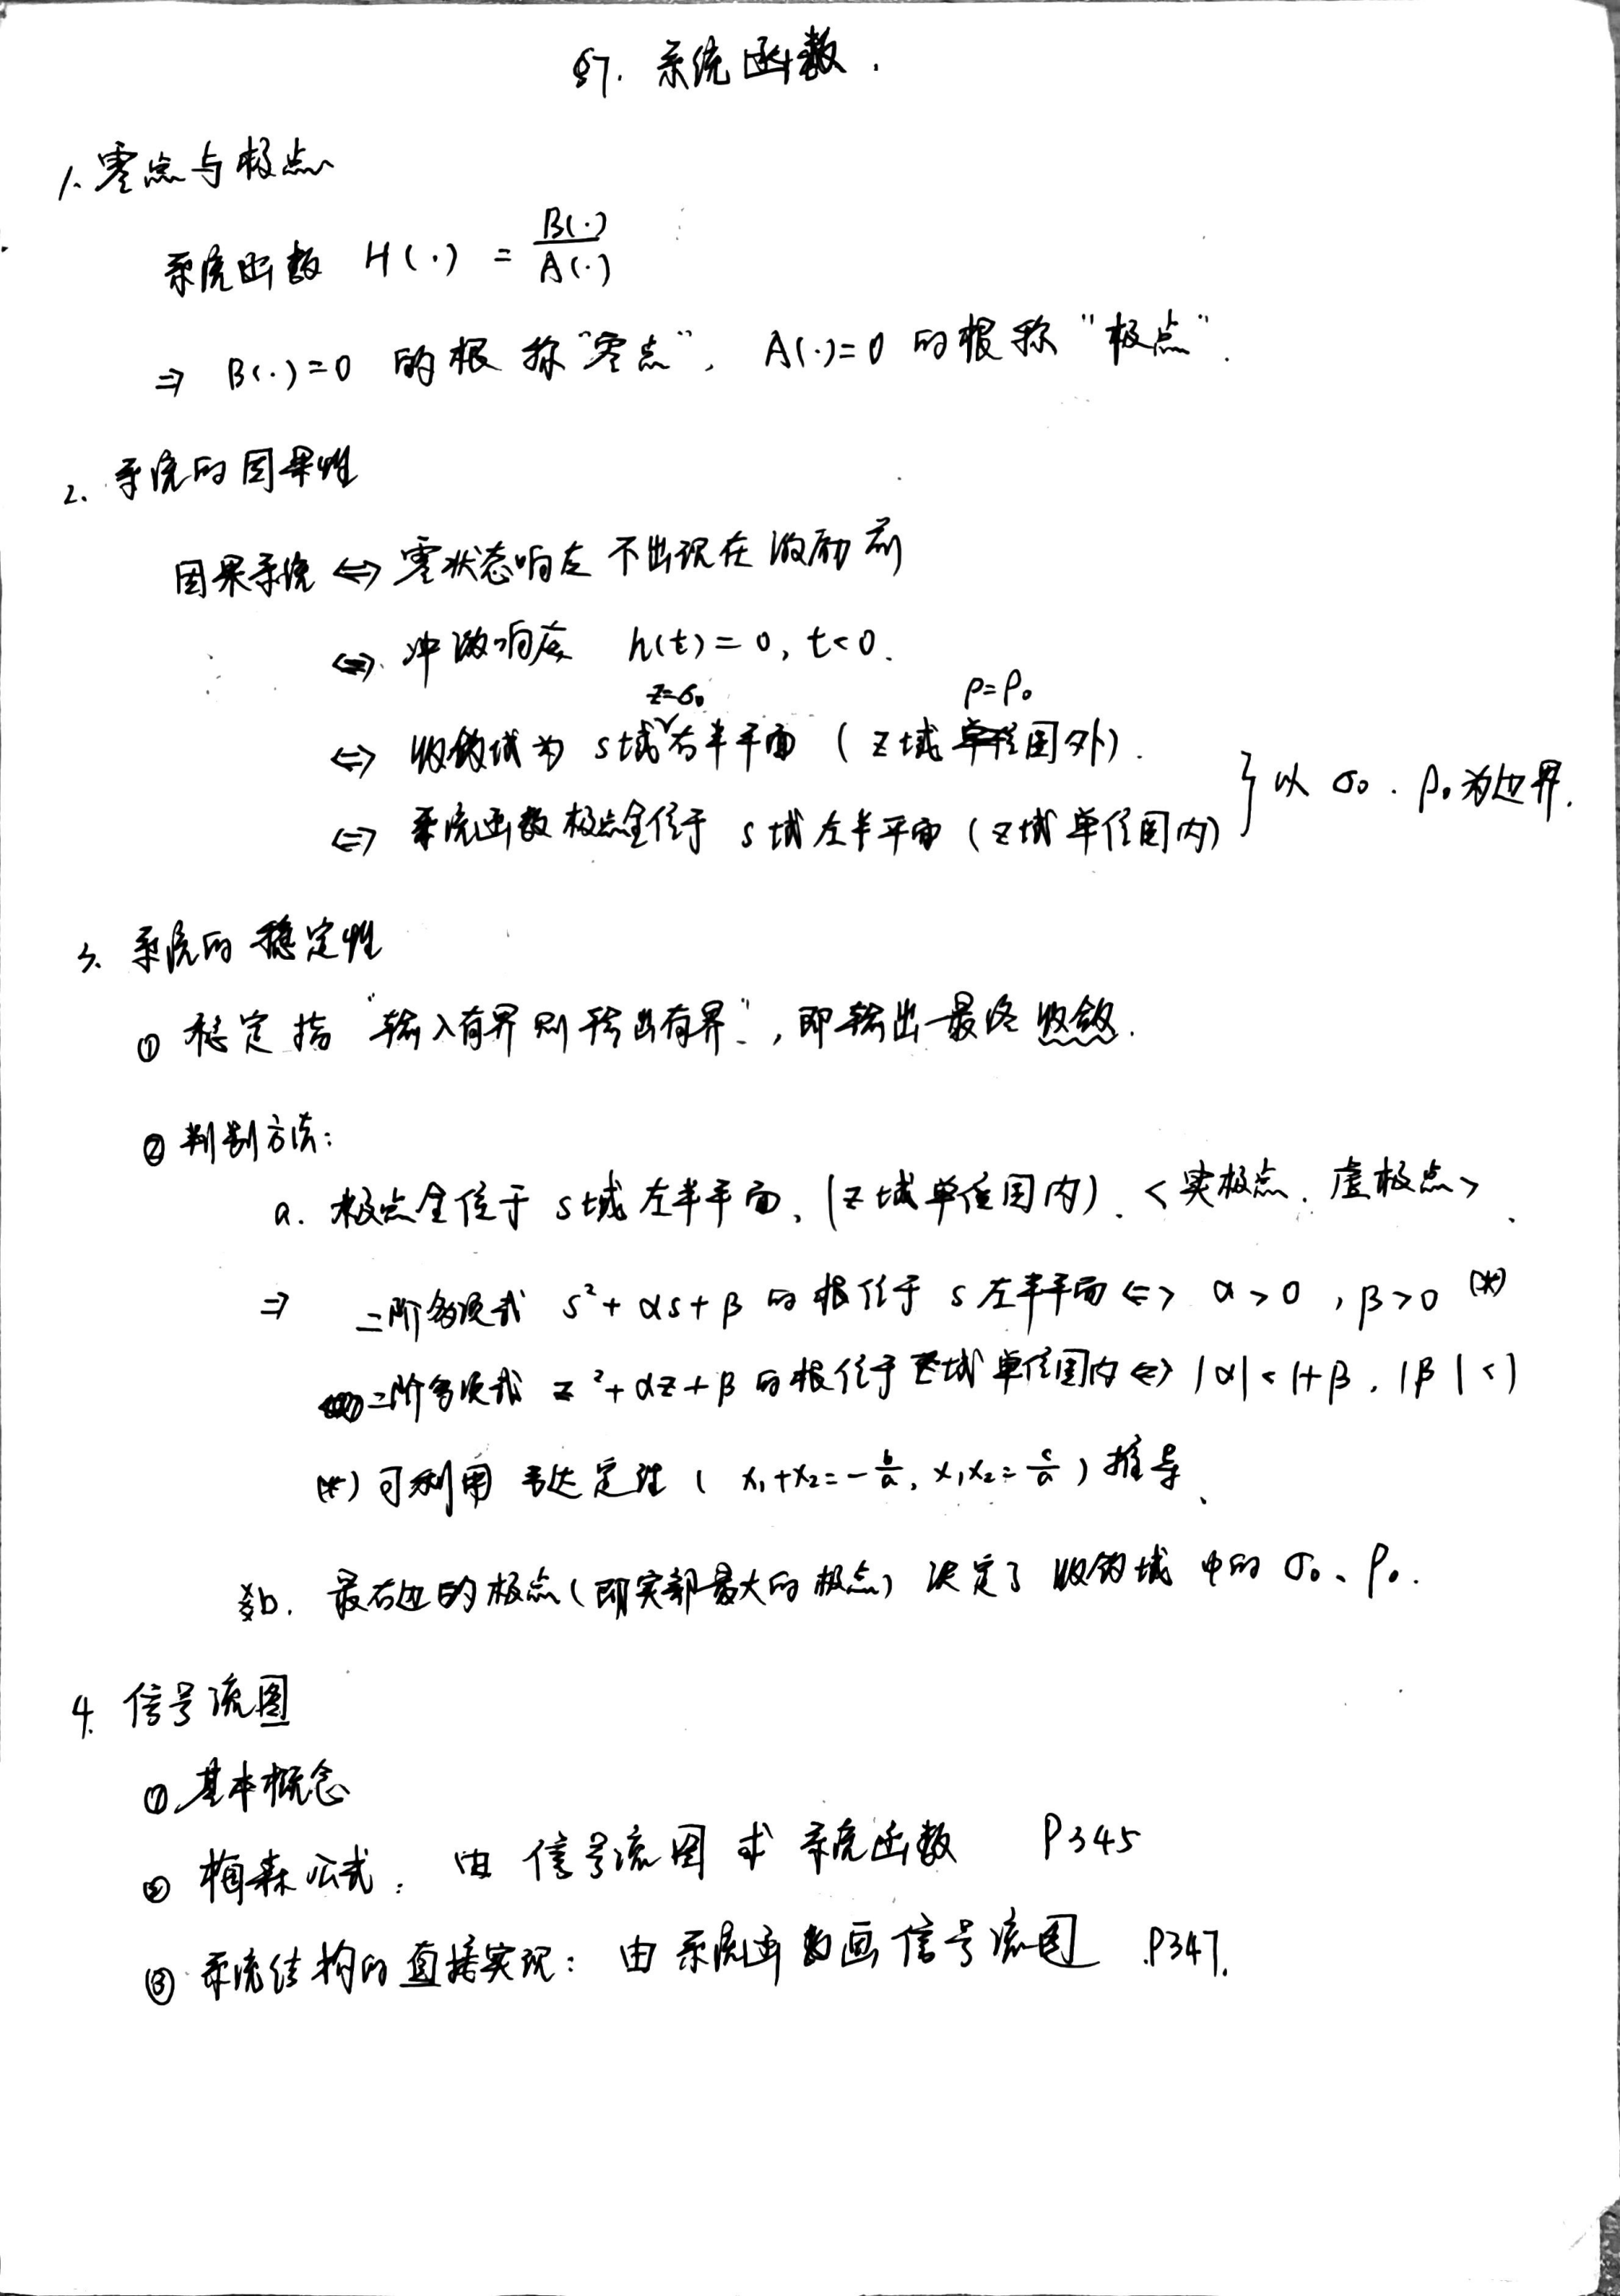 §7. 系统函数.
1. 零点与极点
系统函数 H(·) = B(·)/A(·)
⇒ B(·)=0 的根称“零点”, A(·)=0 的根称“极点”.
2. 系统的因果性
因果系统 ⇔ 零状态响应不出现在激励前
⇔ 冲激响应 h(t)=0, t<0.
z=σ₀ ρ=ρ₀
⇔ 收敛域为 s域右半平面 (z域单位圆外).
⇔ 系统函数极点全位于 s域左半平面 (z域单位圆内)
} 以 σ₀、ρ₀为边界.
3. 系统的稳定性
① 稳定指 “输入有界则输出有界”, 即输出最终收敛.
② 判别方法:
a. 极点全位于 s域左半平面, (z域单位圆内). <实极点、虚极点>
⇒ 二阶多项式 s²+αs+β 的根位于 s左半平面 ⇔ α>0, β>0 (*)
二阶多项式 z²+αz+β 的根位于z域单位圆内 ⇔ |α|<1+β, |β|<1
(*) 可利用韦达定理 ( x₁+x₂=-b/a, x₁x₂=c/a ) 推导.
b. 最右边的极点(即实部最大的极点) 决定了收敛域中的 σ₀、ρ₀.
4. 信号流图
① 基本概念
② 梅森公式: 由信号流图求系统函数 P345
③ 系统结构的直接实现: 由系统函数画信号流图 P347.